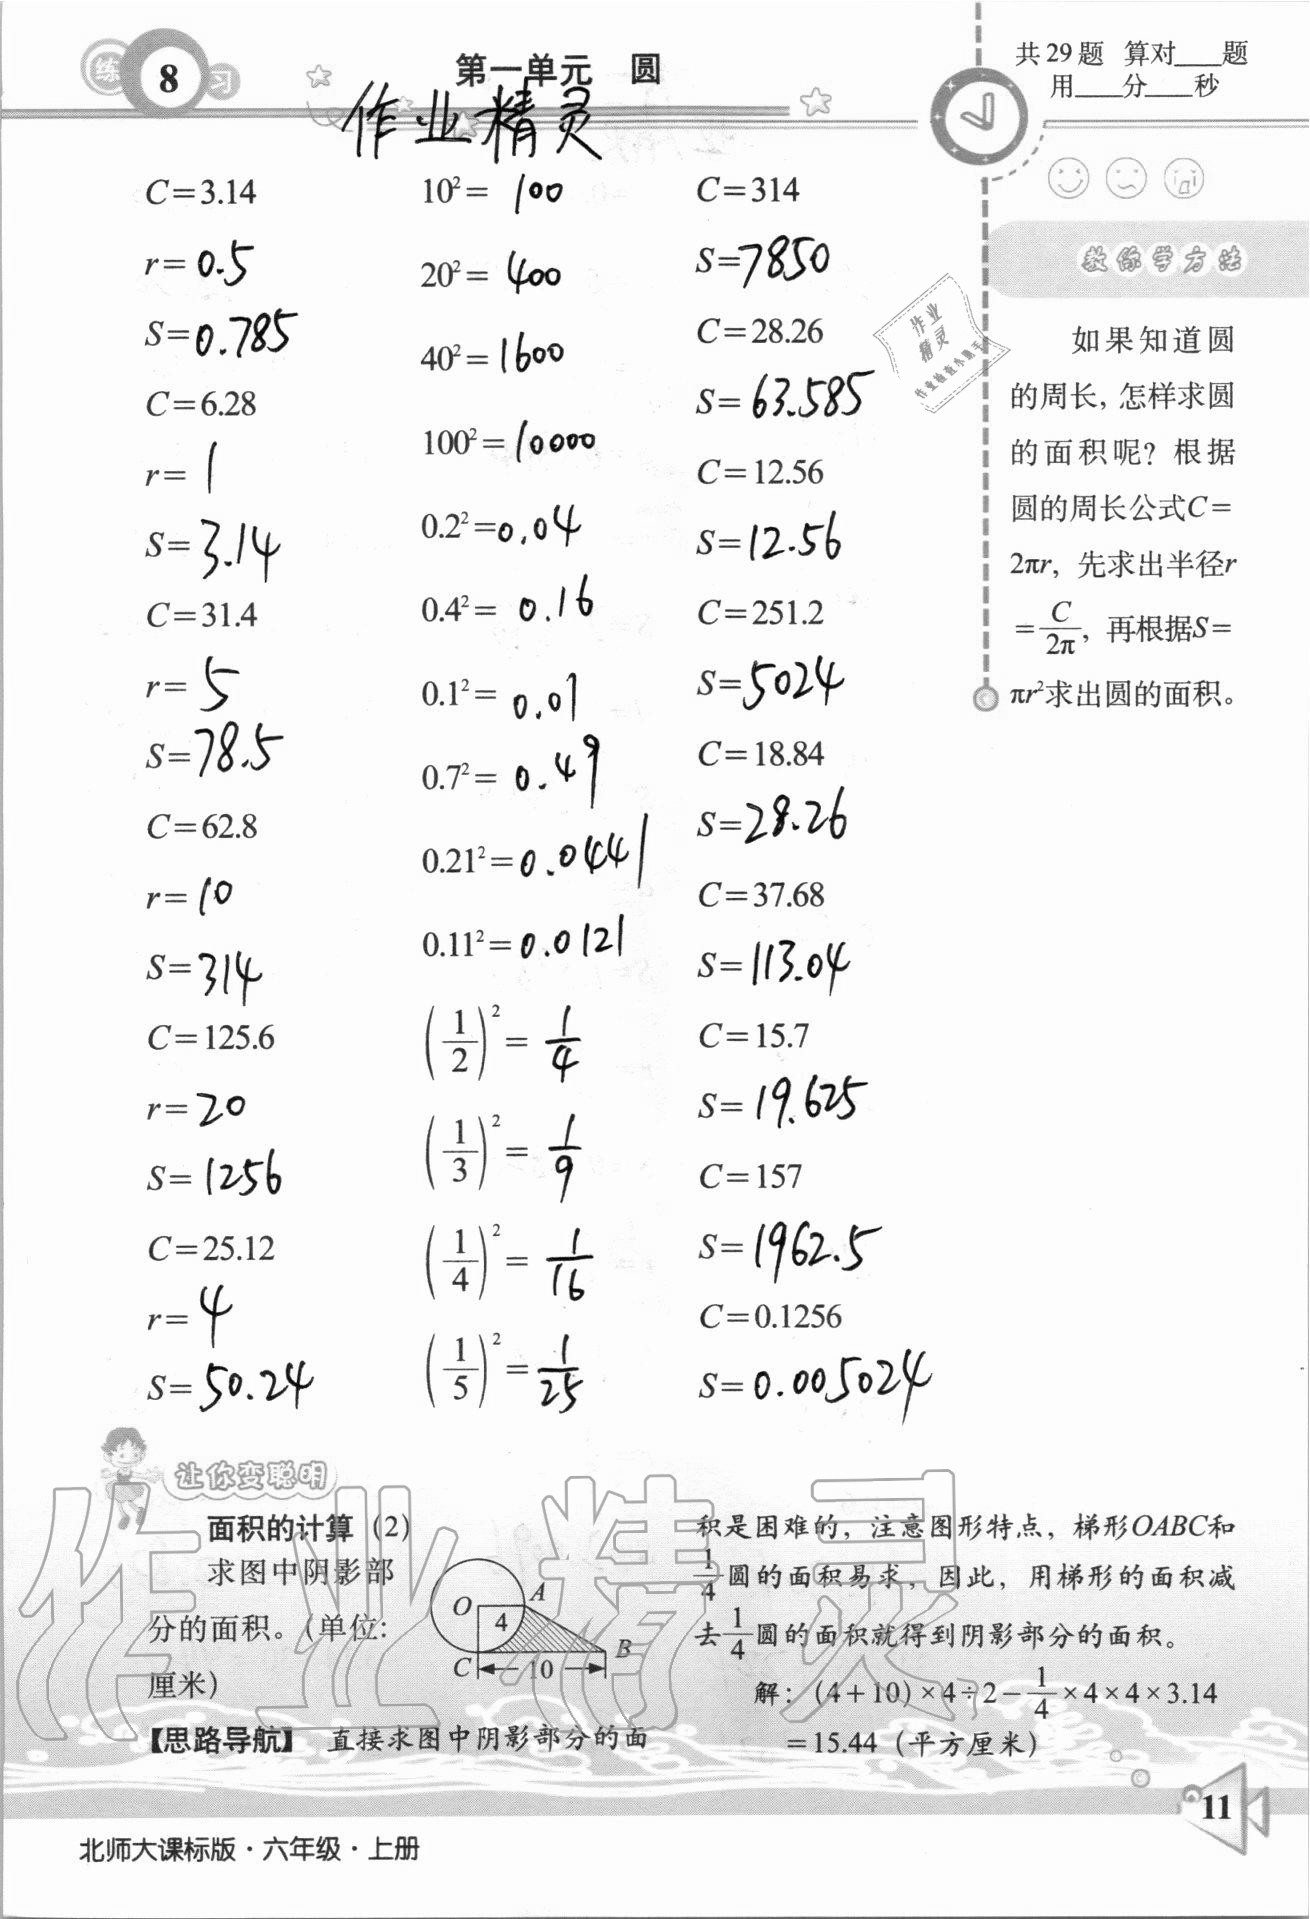 练 8 习
第一单元 圆
共29题 算对____题
用____分____秒
作业精灵
C=3.14
r=0.5
S=0.785
C=6.28
r=1
S=3.14
C=31.4
r=5
S=78.5
C=62.8
r=10
S=314
C=125.6
r=20
S=1256
C=25.12
r=4
S=50.24
10²=100
20²=400
40²=1600
100²=10000
0.2²=0.04
0.4²=0.16
0.1²=0.01
0.7²=0.49
0.21²=0.0441
0.11²=0.0121
(1/2)²=1/4
(1/3)²=1/9
(1/4)²=1/16
(1/5)²=1/25
C=314
S=7850
C=28.26
S=63.585
C=12.56
S=12.56
C=251.2
S=5024
C=18.84
S=28.26
C=37.68
S=113.04
C=15.7
S=19.625
C=157
S=1962.5
C=0.1256
S=0.005024
教你学方法
如果知道圆
的周长，怎样求圆
的面积呢？根据
圆的周长公式C=
2πr，先求出半径r
=C/2π，再根据S=
πr²求出圆的面积。
作业
精灵
让你变聪明
面积的计算（2）
求图中阴影部
分的面积。（单位：
厘米）
O A
4
B
C 10
【思路导航】 直接求图中阴影部分的面
积是困难的，注意图形特点，梯形OABC和
1/4圆的面积易求，因此，用梯形的面积减
去1/4圆的面积就得到阴影部分的面积。
解：(4+10)×4÷2-1/4×4×4×3.14
=15.44（平方厘米）
作业精灵
11
北师大课标版·六年级·上册